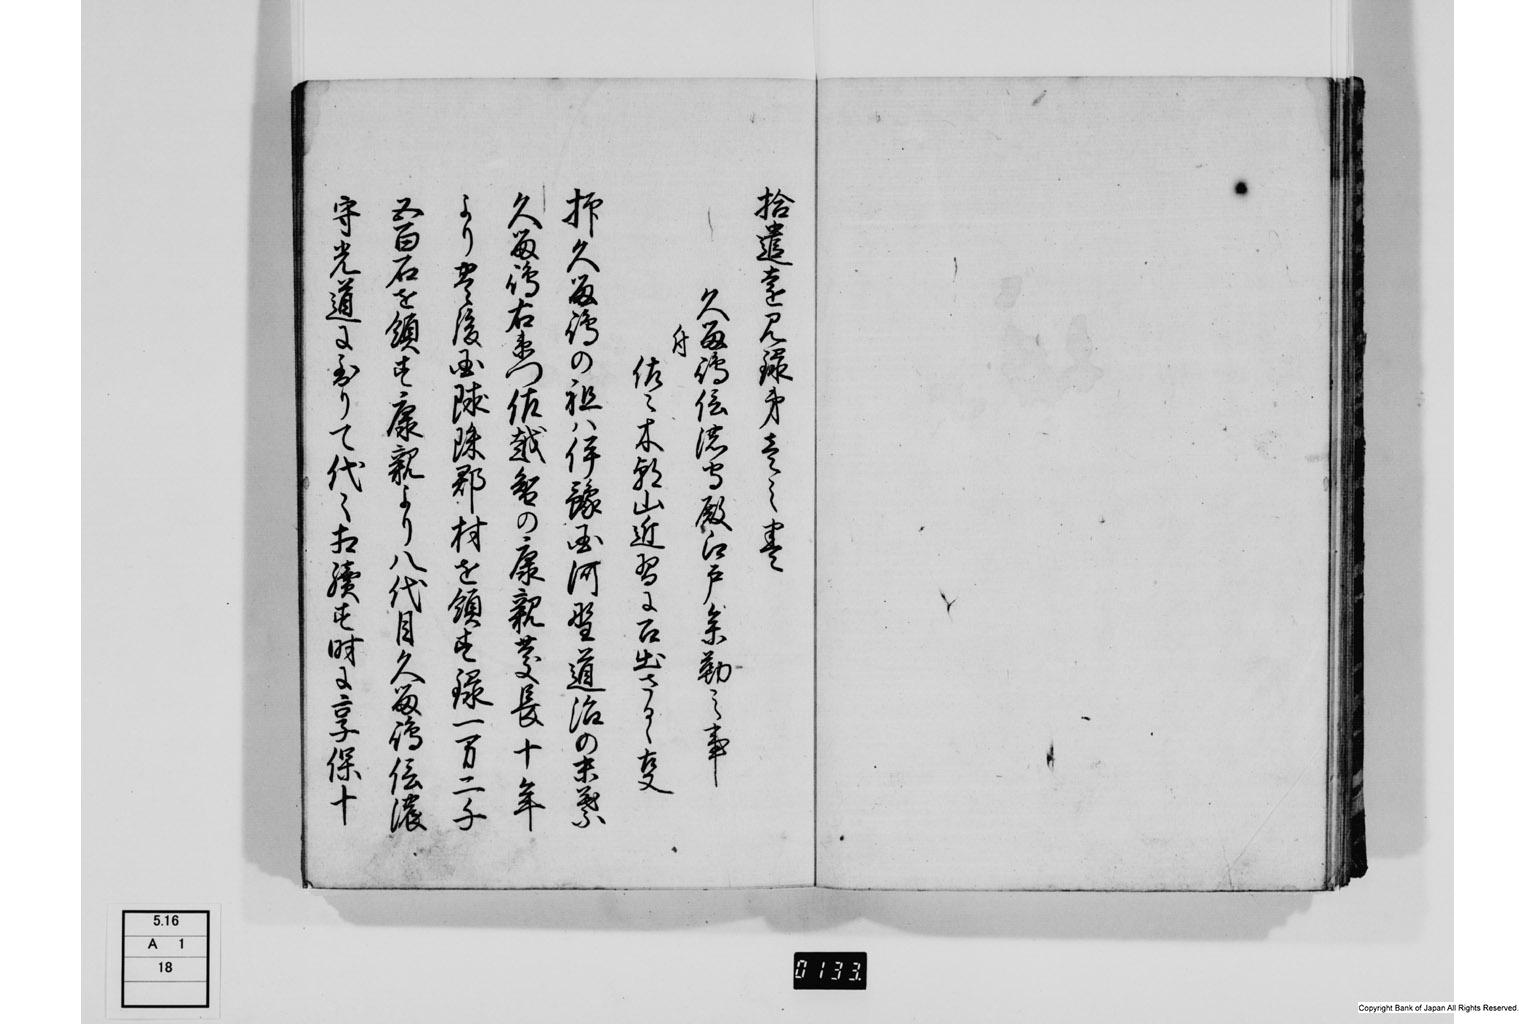 拾遺遠見録第壱之巻
久留嶋信濃守殿江戸参勤之事
付
佐々木朝山近習に召出さるゝ事
抑久留嶋の祖ハ伊豫国河野道治の末葉
久留嶋右衛門佐越智の康親慶長十年
より豊後国球珠郡村を領す禄一万二千
五百石を領す康親より八代目久留嶋信濃
守光道に至りて代々相続す時に享保十
5.16
A 1
18
0133.
Copyright Bank of Japan All Rights Reserved.